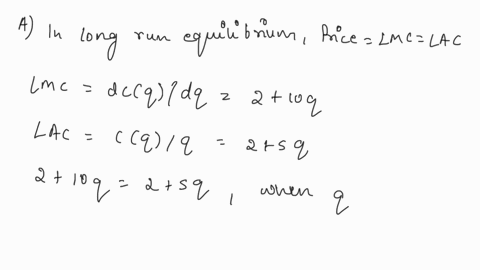 A) In long run equilibrium, Price = LMC = LAC
LMC = dC(q)/dq = 2 + 10q
LAC = C(q)/q = 2 + 5q
2 + 10q = 2 + 5q, when q